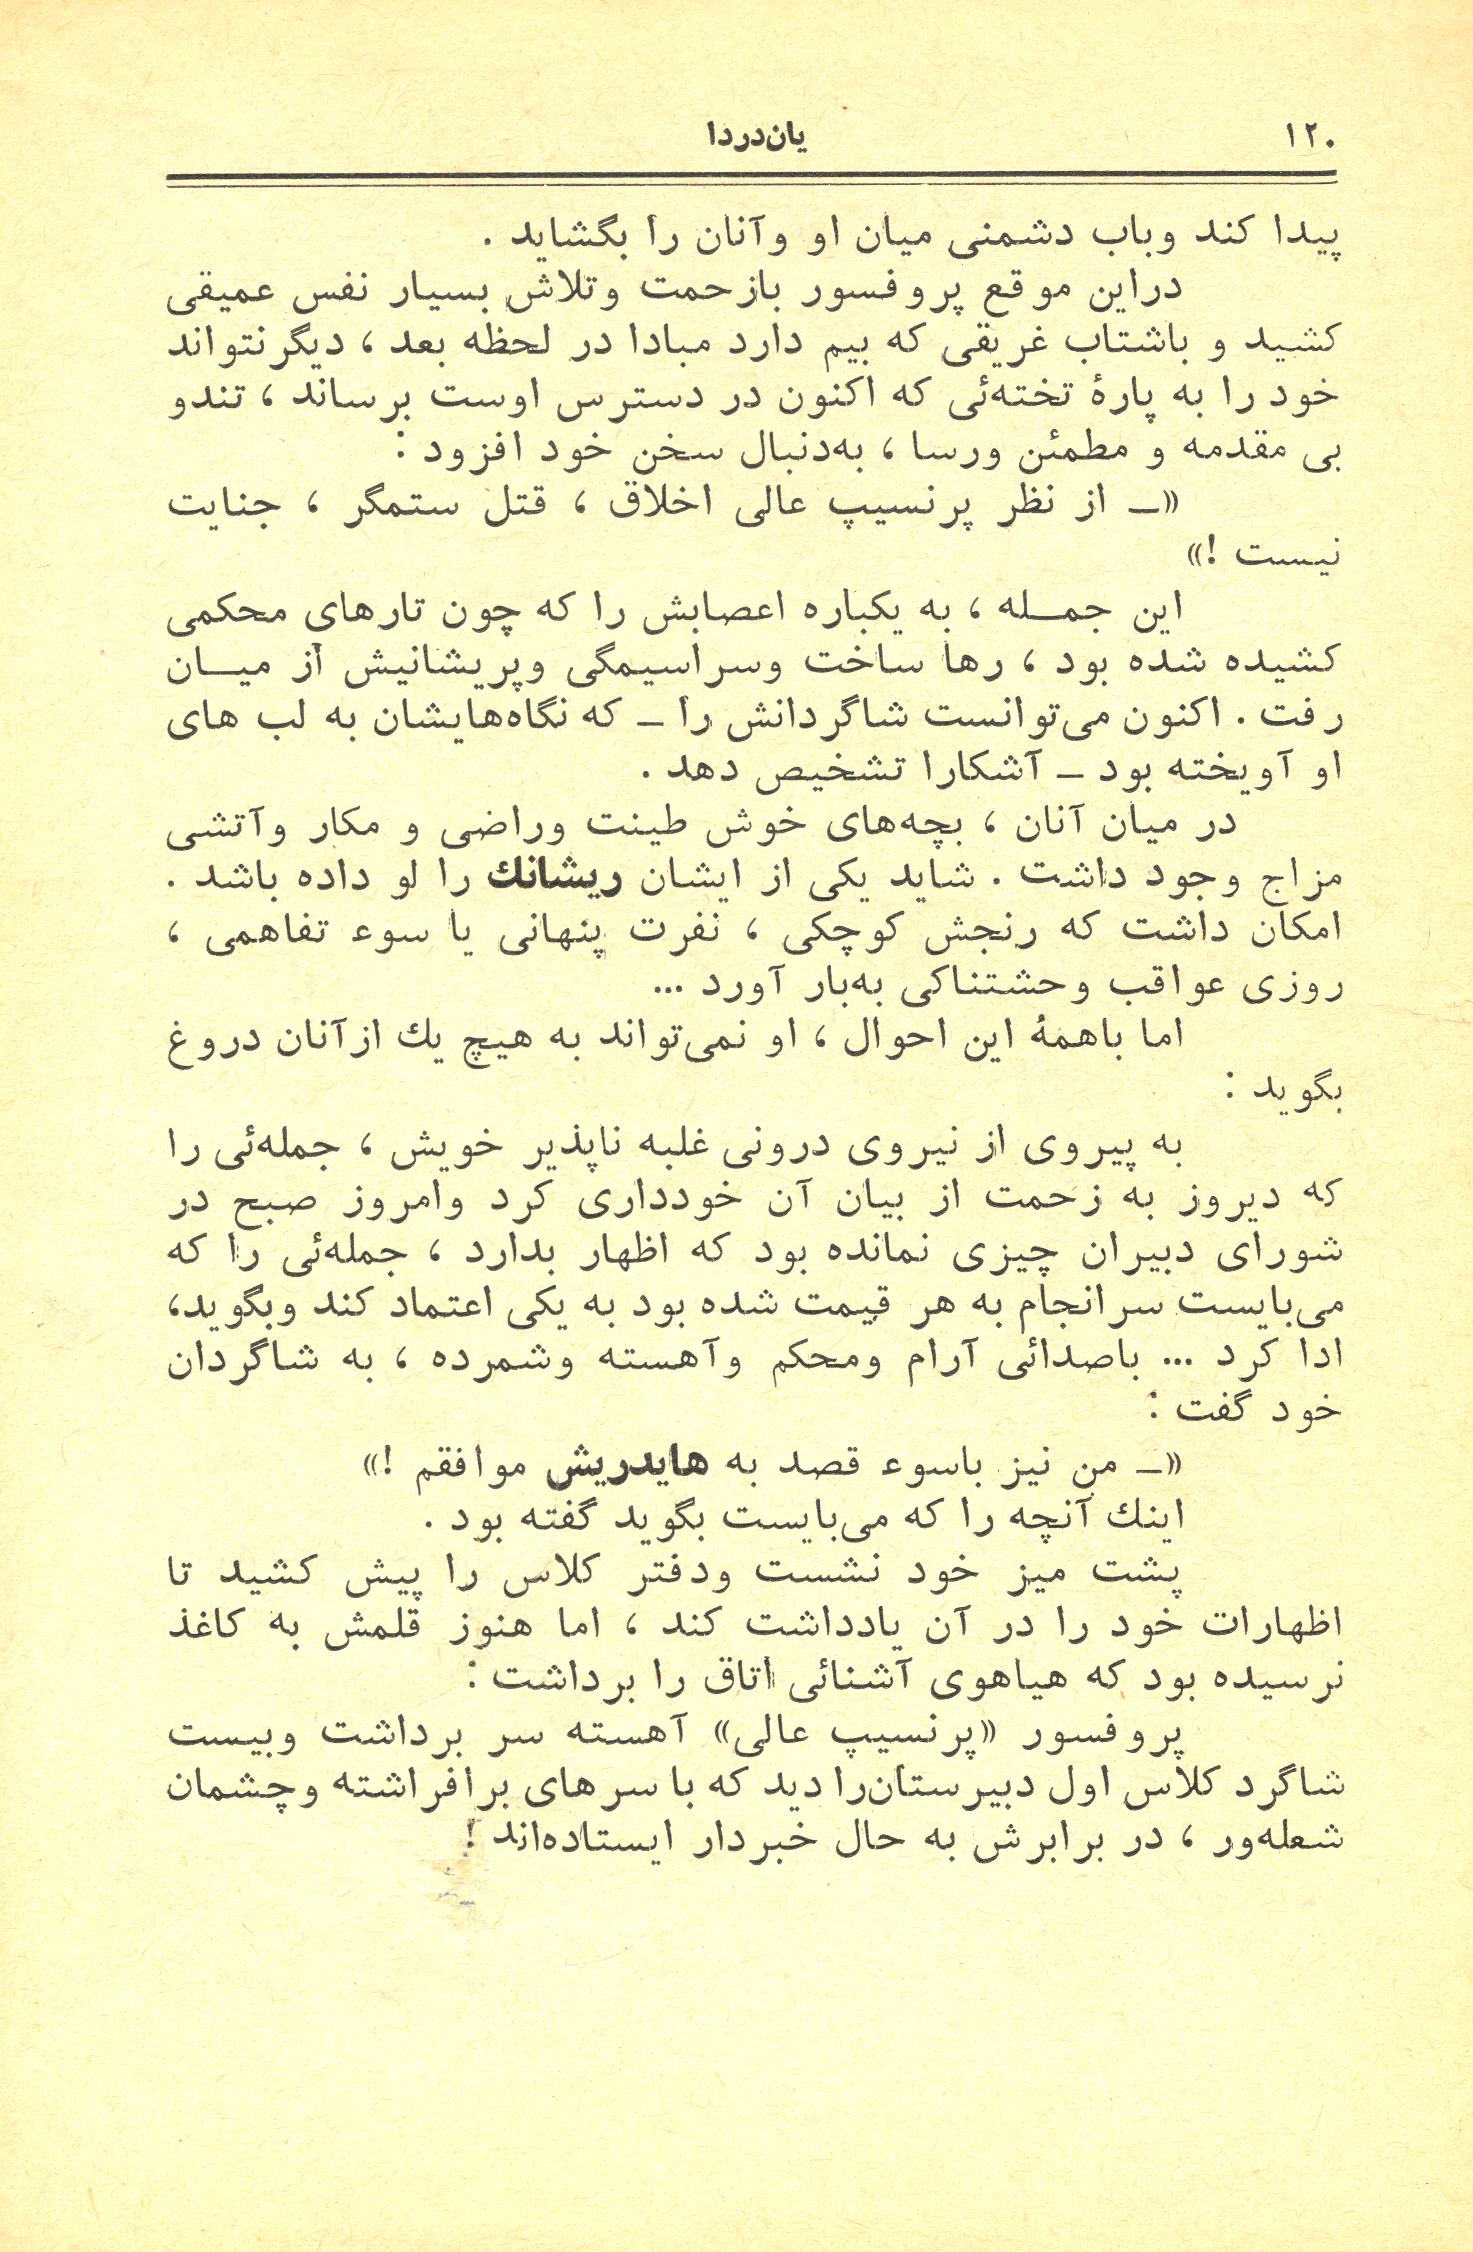 ۱۲۰
یان‌دردا
پیدا کند وباب دشمنی میان او وآنان را بگشاید .
دراین موقع پروفسور بازحمت وتلاش بسیار نفس عمیقی
کشید و باشتاب غریقی که بیم دارد مبادا در لحظه بعد ، دیگرنتواند
خود را به پارۀ تخته‌ئی که اکنون در دسترس اوست برساند ، تندو
بی مقدمه و مطمئن ورسا ، به‌دنبال سخن خود افزود :
«ـ از نظر پرنسیپ عالی اخلاق ، قتل ستمگر ، جنایت
نیست !»
این جمـــله ، به یکباره اعصابش را که چون تارهای محکمی
کشیده شده بود ، رها ساخت وسراسیمگی وپریشانیش از میــان
رفت . اکنون می‌توانست شاگردانش را ـ که نگاه‌هایشان به لب های
او آویخته بود ـ آشکارا تشخیص دهد .
در میان آنان ، بچه‌های خوش طینت وراضی و مکار وآتشی
مزاج وجود داشت . شاید یکی از ایشان ریشانك را لو داده باشد .
امکان داشت که رنجش کوچکی ، نفرت پنهانی یا سوء تفاهمی ،
روزی عواقب وحشتناکی به‌بار آورد ...
اما باهمۀ این احوال ، او نمی‌تواند به هیچ یك ازآنان دروغ
بگوید :
به پیروی از نیروی درونی غلبه ناپذیر خویش ، جمله‌ئی را
که دیروز به زحمت از بیان آن خودداری کرد وامروز صبح در
شورای دبیران چیزی نمانده بود که اظهار بدارد ، جمله‌ئی را که
می‌بایست سرانجام به هر قیمت شده بود به یکی اعتماد کند وبگوید،
ادا کرد ... باصدائی آرام ومحکم وآهسته وشمرده ، به شاگردان
خود گفت :
«ـ من نیز باسوء قصد به هایدریش موافقم !»
اینك آنچه را که می‌بایست بگوید گفته بود .
پشت میز خود نشست ودفتر کلاس را پیش کشید تا
اظهارات خود را در آن یادداشت کند ، اما هنوز قلمش به کاغذ
نرسیده بود که هیاهوی آشنائی اتاق را برداشت :
پروفسور «پرنسیپ عالی» آهسته سر برداشت وبیست
شاگرد کلاس اول دبیرستان‌را دید که با سرهای برافراشته وچشمان
شعله‌ور ، در برابرش به حال خبردار ایستاده‌اند !